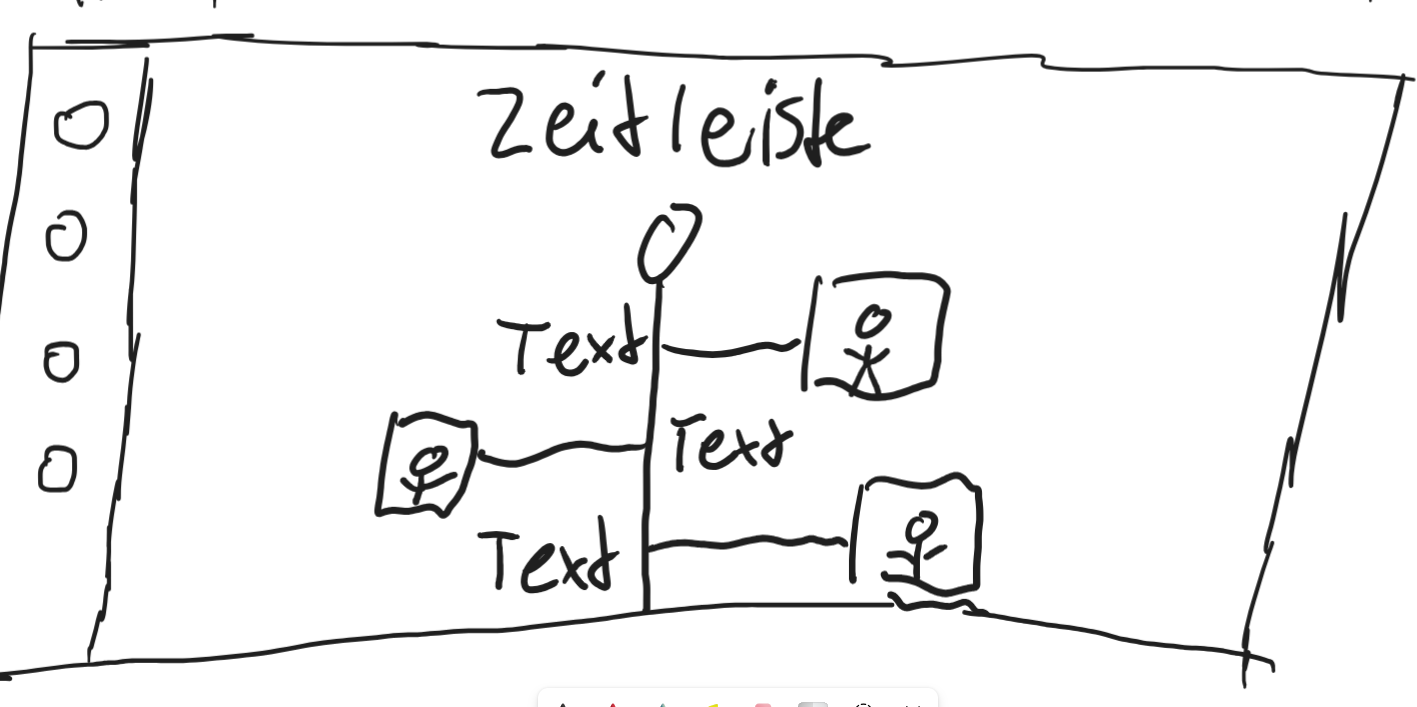 Zeitleiste
Text
Text
Text